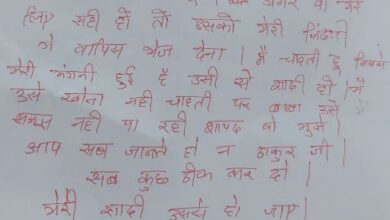 अगर वो मेरे
लिए सही हो तो उसको मेरी जिंदगी
मे वापिस भेज देना । मैं चाहती हू जिससे
मेरी मंगनी हुई है उसी से शादी हो । मैं
उसे खोना नही चाहती पर उसे
समझ नही पा रही शायद वो मुझे ।
आप सब जानते हो न ठाकुर जी ।
सब कुछ ठीक कर दो ।
मेरी शादी उससे हो जाए ।